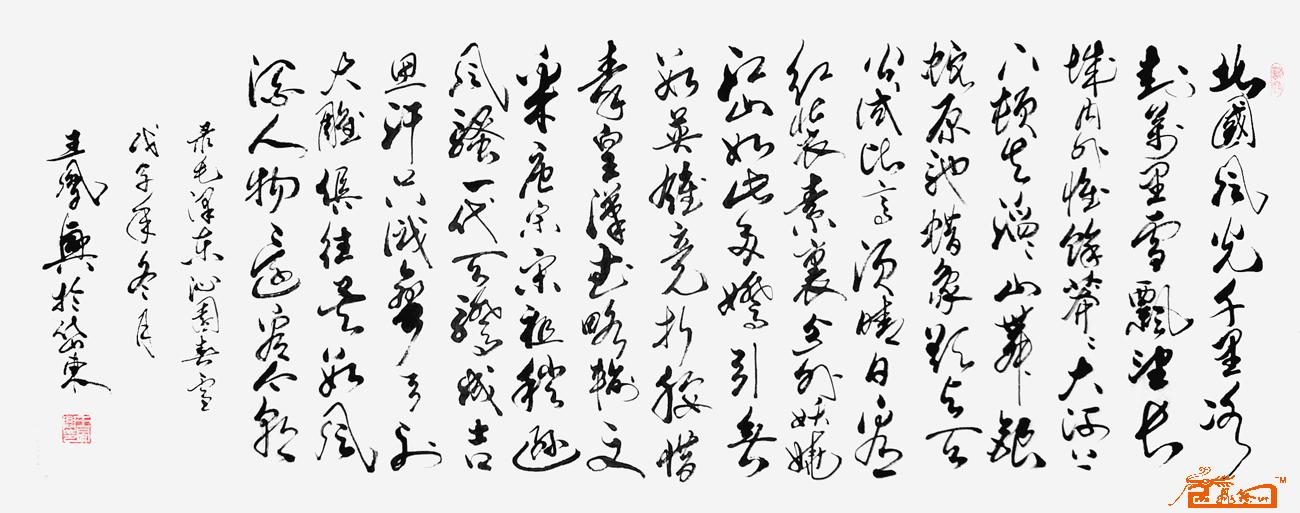 北國風光千里冰
封萬里雪飄望長
城内外惟餘莽莽大河上
下頓失滔滔山舞銀
蛇原馳蜡象欲與天
公試比高須晴日看
紅裝素裹分外妖嬈
江山如此多嬌引無
數英雄競折腰惜
秦皇漢武略輸文
采唐宗宋祖稍遜
風騷一代天驕成吉
思汗只識彎弓射
大雕俱往矣數風
流人物還看今朝
录毛澤東沁園春雪
戊子年冬月
王鳳興於岱東